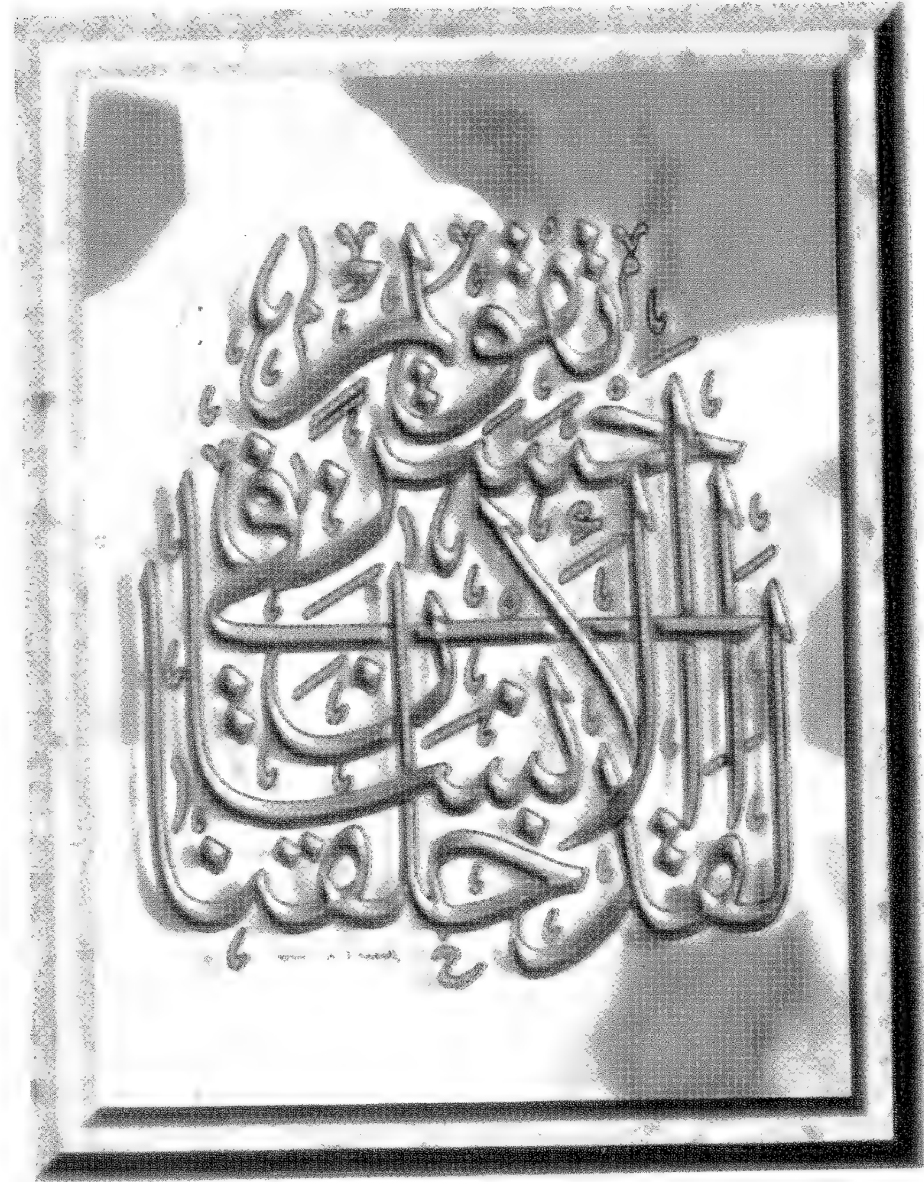 لقد خلقنا
الإنسان
في أحسن
تقويم